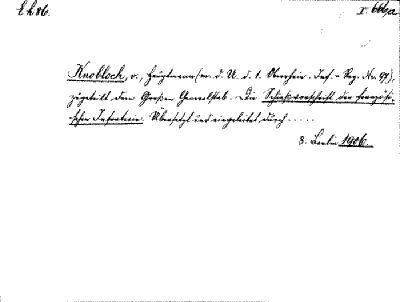 Knobloch, v., Hauptmann (m. d. U. d. 1. Oberrhein. Inf.-Reg. No. 97),
zugeteilt dem Großen Generalstab. Die Schießvorschrift der französi-
schen Infanterie. Übersetzt und eingeleitet durch .....
8. Berlin 1906.